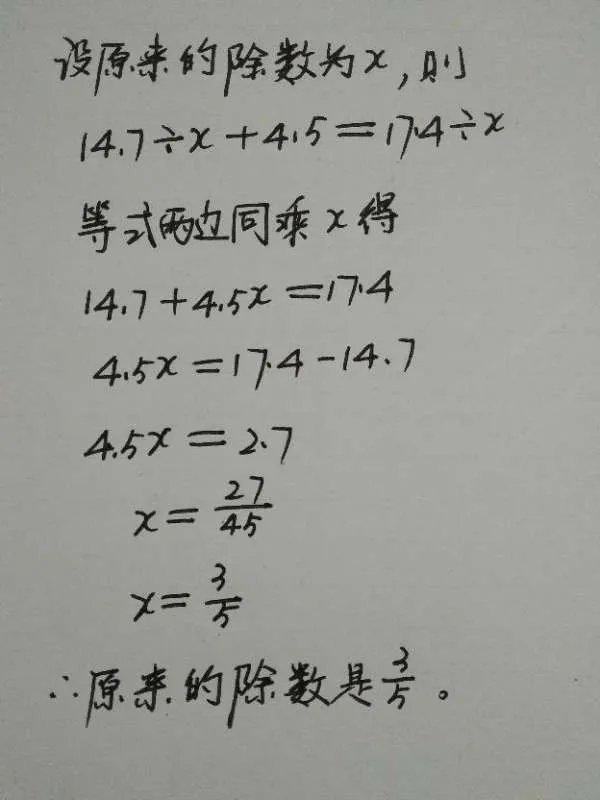 设原来的除数为x,则
14.7÷x+4.5=17.4÷x
等式两边同乘x得
14.7+4.5x=17.4
4.5x=17.4-14.7
4.5x=2.7
x=27/45
x=3/5
∴原来的除数是3/5。